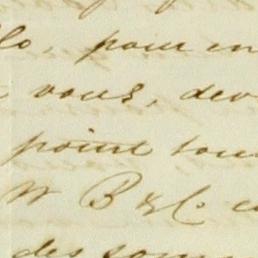 lo, pour en
vous, dev
point tou
W B & C. c
des som